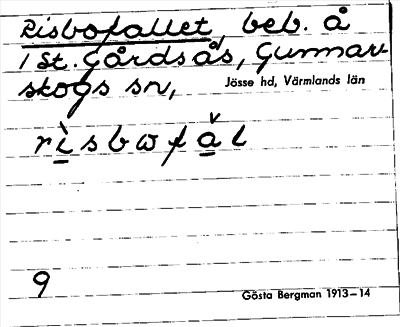 Risbofallet, beb. å
1 St. Gårdsås, Gunnar-
skogs sn,
Jösse hd, Värmlands län
rı̀sbωfǎl
9
Gösta Bergman 1913–14